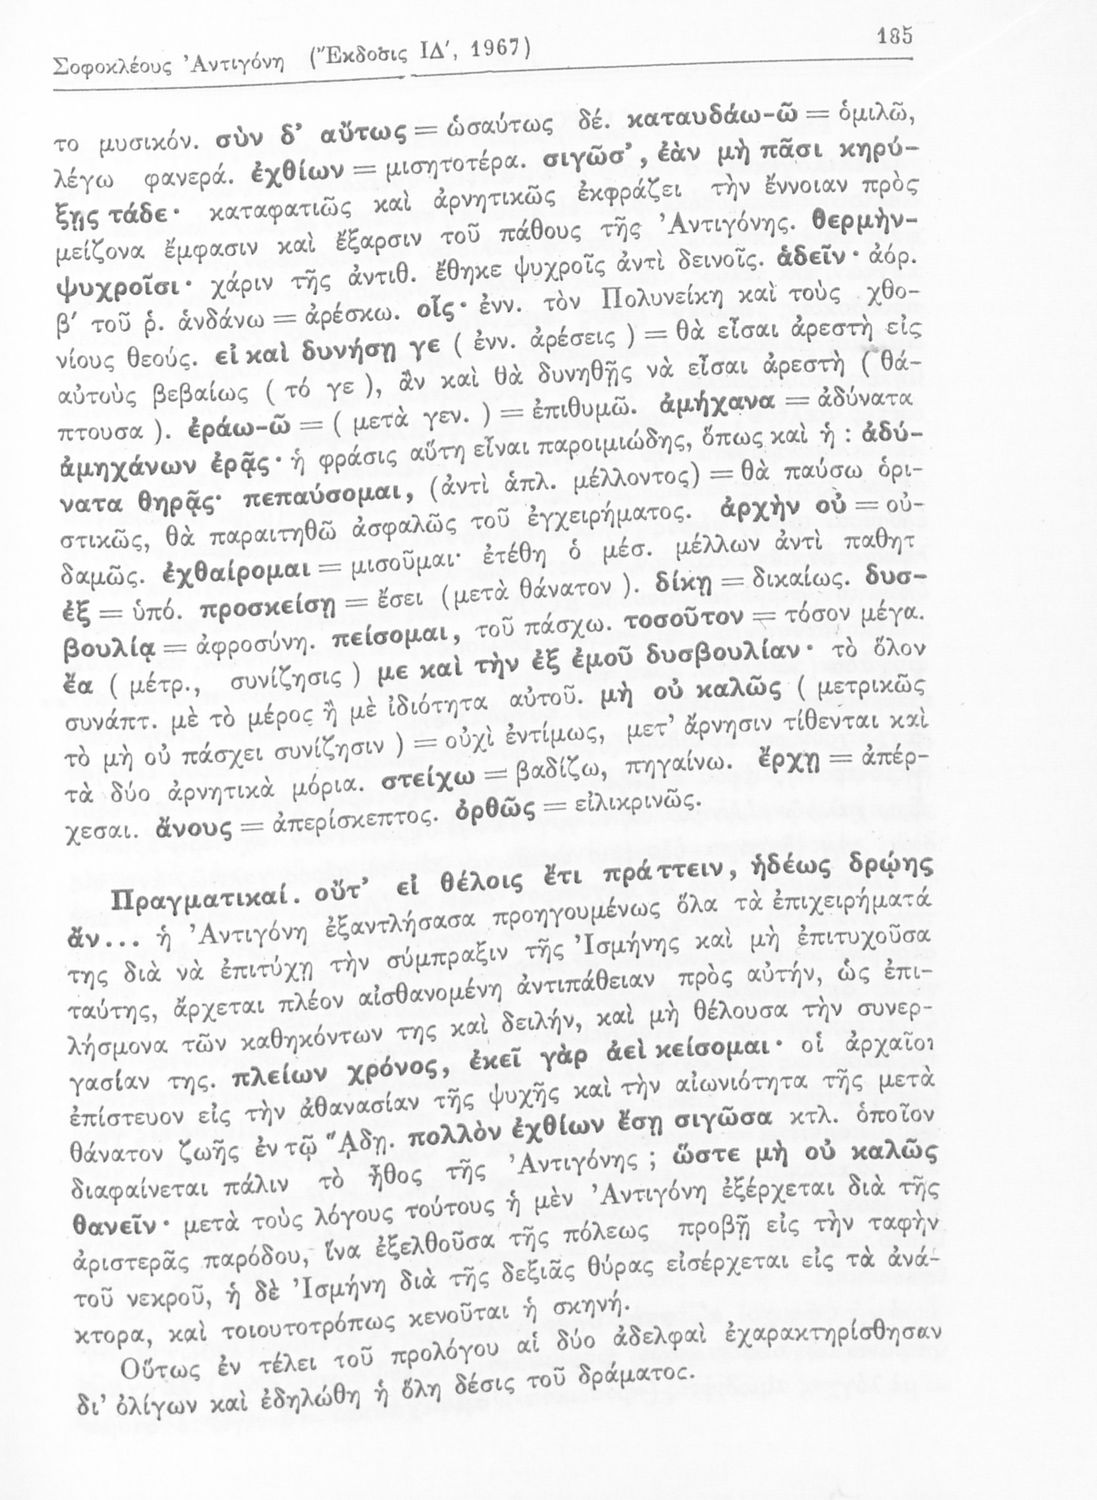 Σοφοκλέους Ἀντιγόνη (Ἔκδοσις ΙΔ′, 1967) 185
το μυσικόν. σὺν δ' αὔτως = ὡσαύτως δέ. καταυδάω-ῶ = ὁμιλῶ,
λέγω φανερά. ἐχθίων = μισητοτέρα. σιγῶσ', ἐὰν μὴ πᾶσι κηρύ-
ξῃς τάδε· καταφατιῶς καὶ ἀρνητικῶς ἐκφράζει τὴν ἔννοιαν πρὸς
μείζονα ἔμφασιν καὶ ἔξαρσιν τοῦ πάθους τῆς Ἀντιγόνης. θερμὴν-
ψυχροῖσι· χάριν τῆς ἀντιθ. ἔθηκε ψυχροῖς ἀντὶ δεινοῖς. ἁδεῖν· ἀόρ.
β′ τοῦ ῥ. ἁνδάνω = ἀρέσκω. οἷς· ἐνν. τὸν Πολυνείκη καὶ τοὺς χθο-
νίους θεούς. εἰ καὶ δυνήσῃ γε ( ἐνν. ἀρέσεις ) = θὰ εἶσαι ἀρεστὴ εἰς
αὐτοὺς βεβαίως ( τό γε ), ἂν καὶ θὰ δυνηθῇς νὰ εἶσαι ἀρεστὴ ( θά-
πτουσα ). ἐράω-ῶ = ( μετὰ γεν. ) = ἐπιθυμῶ. ἀμήχανα = ἀδύνατα
ἀμηχάνων ἐρᾷς· ἡ φράσις αὕτη εἶναι παροιμιώδης, ὅπως καὶ ἡ : ἀδύ-
νατα θηρᾷς· πεπαύσομαι, (ἀντὶ ἁπλ. μέλλοντος) = θὰ παύσω ὁρι-
στικῶς, θὰ παραιτηθῶ ἀσφαλῶς τοῦ ἐγχειρήματος. ἀρχὴν οὐ = οὐ-
δαμῶς. ἐχθαίρομαι = μισοῦμαι· ἐτέθη ὁ μέσ. μέλλων ἀντὶ παθητ
ἐξ = ὑπό. προσκείσῃ = ἔσει (μετὰ θάνατον ). δίκῃ = δικαίως. δυσ-
βουλίᾳ = ἀφροσύνη. πείσομαι, τοῦ πάσχω. τοσοῦτον = τόσον μέγα.
ἔα ( μέτρ., συνίζησις ) με καὶ τὴν ἐξ ἐμοῦ δυσβουλίαν· τὸ ὅλον
συνάπτ. μὲ τὸ μέρος ἢ μὲ ἰδιότητα αὐτοῦ. μὴ οὐ καλῶς ( μετρικῶς
τὸ μὴ οὐ πάσχει συνίζησιν ) = οὐχὶ ἐντίμως, μετ' ἄρνησιν τίθενται καὶ
τὰ δύο ἀρνητικὰ μόρια. στείχω = βαδίζω, πηγαίνω. ἔρχῃ = ἀπέρ-
χεσαι. ἄνους = ἀπερίσκεπτος. ὀρθῶς = εἰλικρινῶς.
Πραγματικαί. οὔτ' εἰ θέλοις ἔτι πράττειν, ἡδέως δρῴης
ἄν... ἡ Ἀντιγόνη ἐξαντλήσασα προηγουμένως ὅλα τὰ ἐπιχειρήματά
της διὰ νὰ ἐπιτύχῃ τὴν σύμπραξιν τῆς Ἰσμήνης καὶ μὴ ἐπιτυχοῦσα
ταύτης, ἄρχεται πλέον αἰσθανομένη ἀντιπάθειαν πρὸς αὐτήν, ὡς ἐπι-
λήσμονα τῶν καθηκόντων της καὶ δειλήν, καὶ μὴ θέλουσα τὴν συνερ-
γασίαν της. πλείων χρόνος, ἐκεῖ γὰρ ἀεὶ κείσομαι· οἱ ἀρχαῖοι
ἐπίστευον εἰς τὴν ἀθανασίαν τῆς ψυχῆς καὶ τὴν αἰωνιότητα τῆς μετὰ
θάνατον ζωῆς ἐν τῷ ᾍδῃ. πολλὸν ἐχθίων ἔσῃ σιγῶσα κτλ. ὁποῖον
διαφαίνεται πάλιν τὸ ἦθος τῆς Ἀντιγόνης ; ὥστε μὴ οὐ καλῶς
θανεῖν· μετὰ τοὺς λόγους τούτους ἡ μὲν Ἀντιγόνη ἐξέρχεται διὰ τῆς
ἀριστερᾶς παρόδου, ἵνα ἐξελθοῦσα τῆς πόλεως προβῇ εἰς τὴν ταφὴν
τοῦ νεκροῦ, ἡ δὲ Ἰσμήνη διὰ τῆς δεξιᾶς θύρας εἰσέρχεται εἰς τὰ ἀνά-
κτορα, καὶ τοιουτοτρόπως κενοῦται ἡ σκηνή.
Οὕτως ἐν τέλει τοῦ προλόγου αἱ δύο ἀδελφαὶ ἐχαρακτηρίσθησαν
δι' ὀλίγων καὶ ἐδηλώθη ἡ ὅλη δέσις τοῦ δράματος.